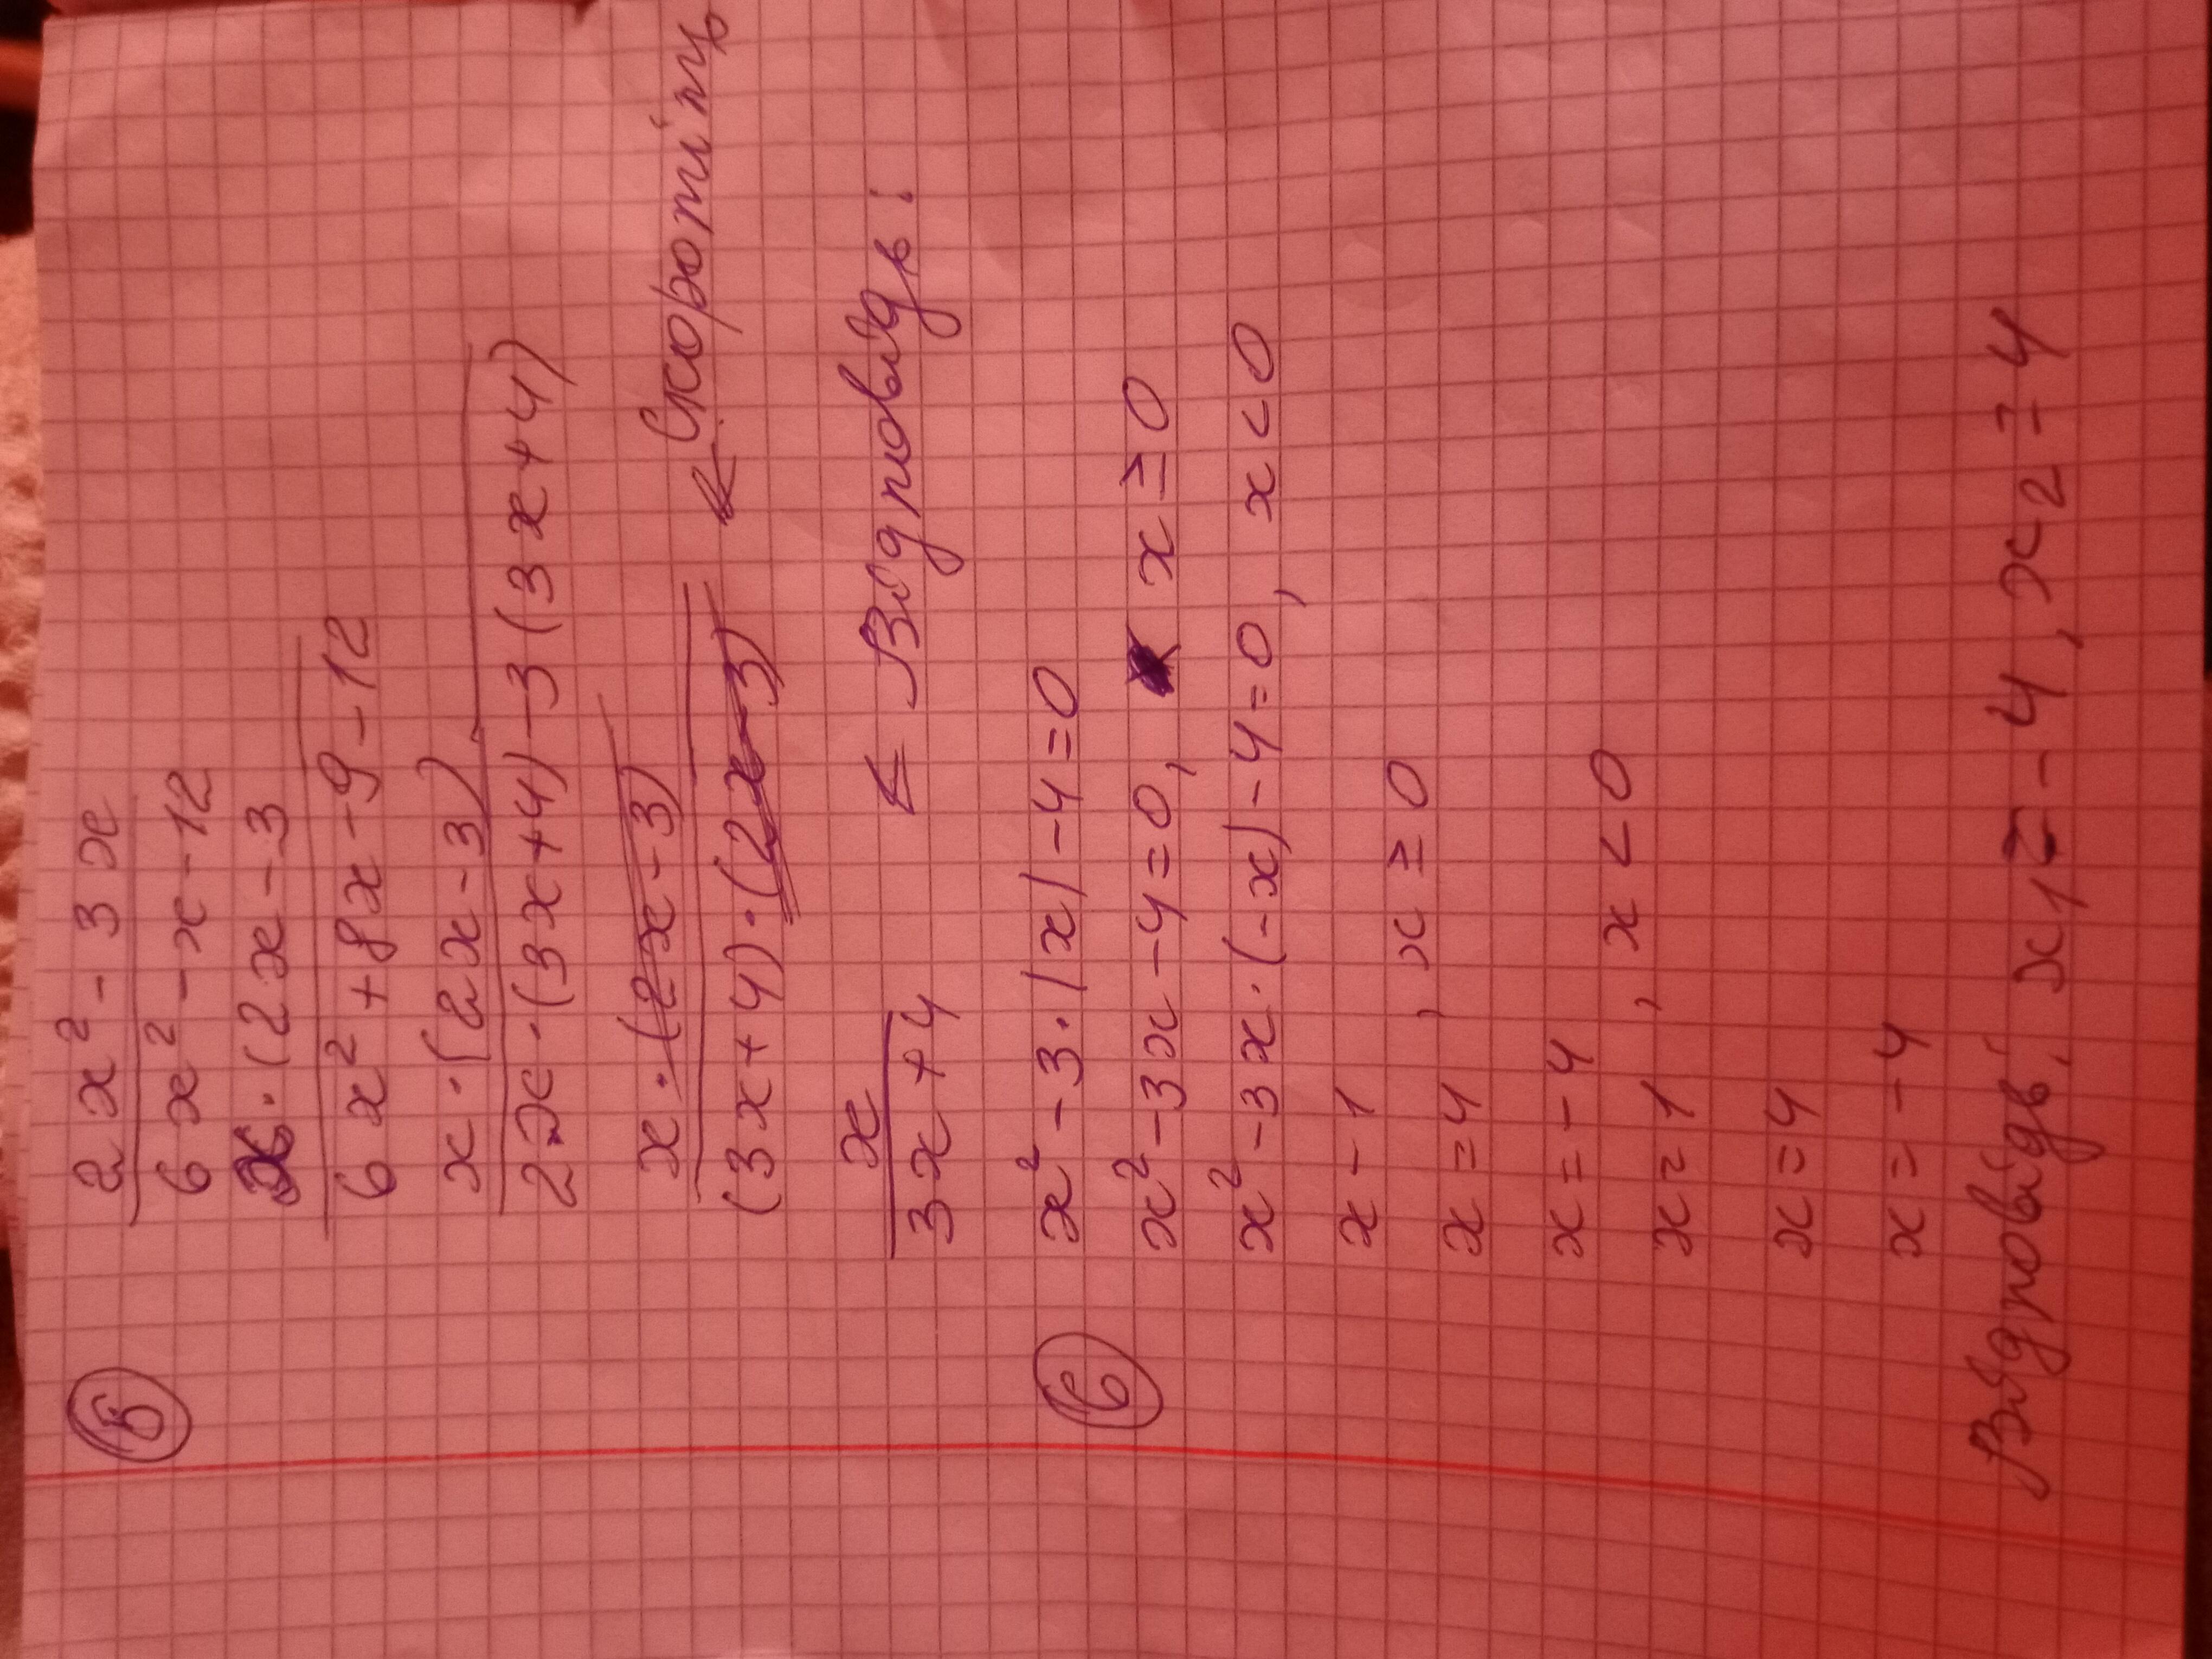 5
2x² - 3x
6x² - x - 12
x · (2x - 3
6x² + 8x - 9 - 12
x · (2x - 3)
2x · (3x + 4) - 3 (3x + 4)
x · (2x - 3) ← Скоротіть
(3x + 4) · (2x - 3)
x
3x + 4 ← Відповідь:
6
x² - 3 · |x| - 4 = 0
x² - 3x - 4 = 0, x ≥ 0
x² - 3x · (-x) - 4 = 0, x < 0
x - 1
, x ≥ 0
x = 4
x = -4
, x < 0
x = 1
x = 4
x = -4
Відповідь: x₁ = -4, x₂ = 4